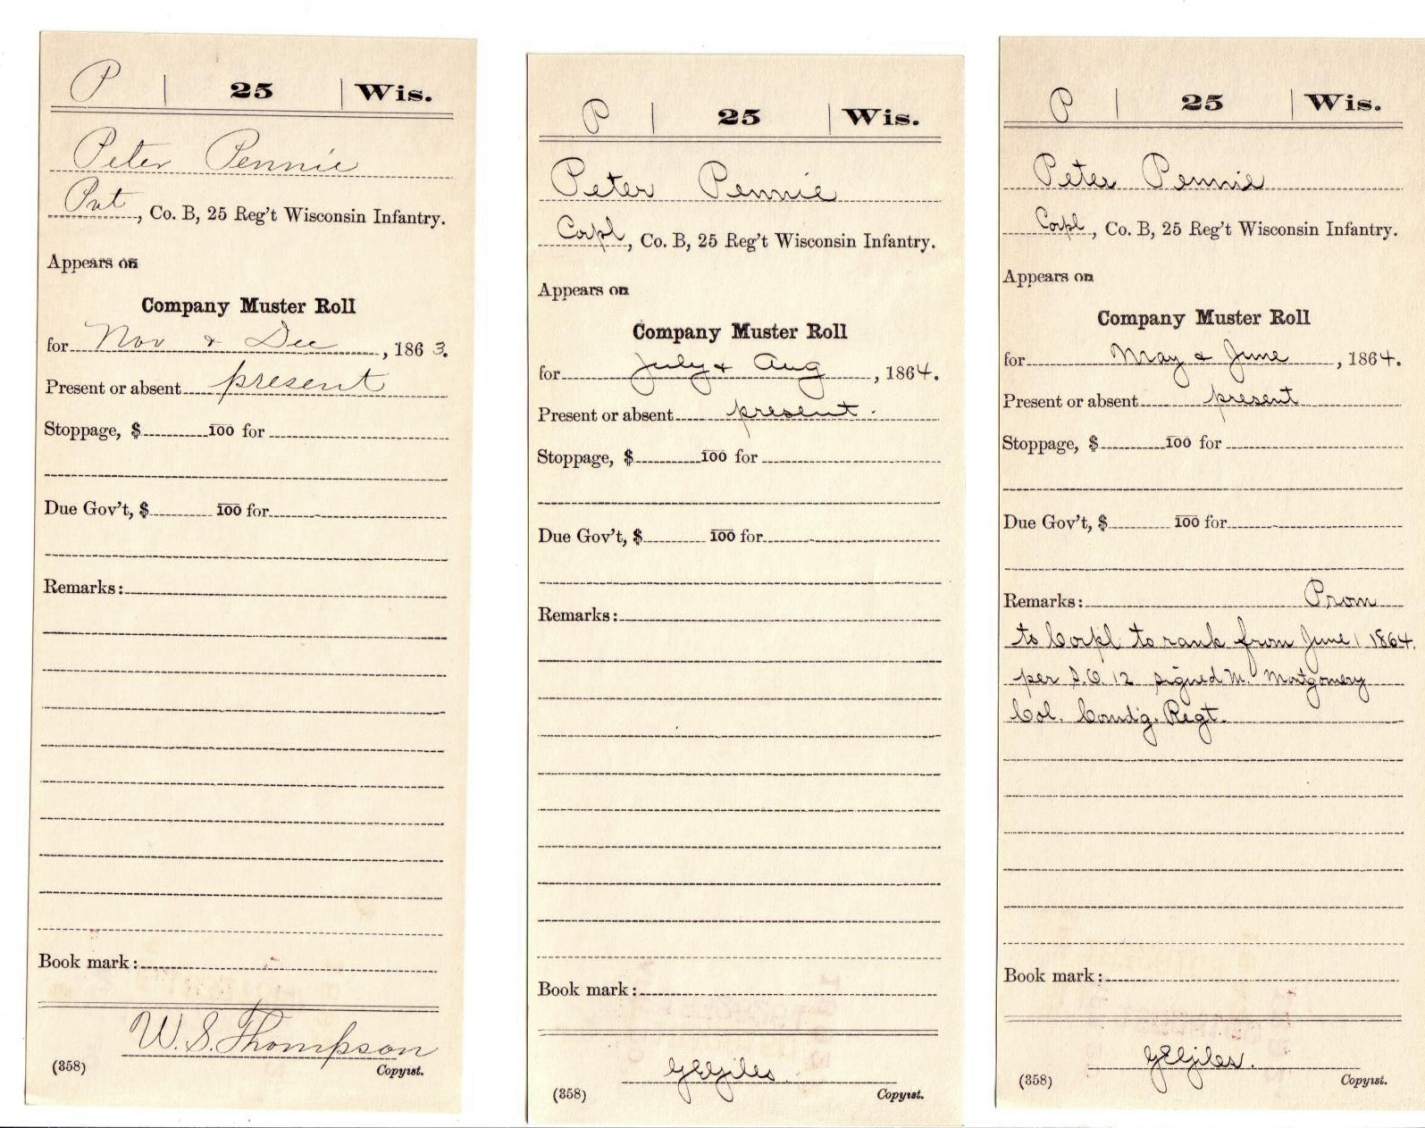 P | 25 | Wis.
Peter Pennie
Pvt, Co. B, 25 Reg't Wisconsin Infantry.
Appears on
Company Muster Roll
for Nov & Dec, 1863.
Present or absent present
Stoppage, $ 100 for
Due Gov't, $ 100 for
Remarks:
Book mark:
W. S. Thompson
(358) Copyist.
P | 25 | Wis.
Peter Pennie
Corpl, Co. B, 25 Reg't Wisconsin Infantry.
Appears on
Company Muster Roll
for July & Aug, 1864.
Present or absent present.
Stoppage, $ 100 for
Due Gov't, $ 100 for
Remarks:
Book mark:
G E Giles
(358) Copyist.
P | 25 | Wis.
Peter Pennie
Corpl, Co. B, 25 Reg't Wisconsin Infantry.
Appears on
Company Muster Roll
for May & June, 1864.
Present or absent present
Stoppage, $ 100 for
Due Gov't, $ 100 for
Remarks: Prom
to Corpl to rank from June 1 1864.
per S.O. 12 signed M. Montgomery
Col. Comd'g. Regt.
Book mark:
G E Giles.
(358) Copyist.